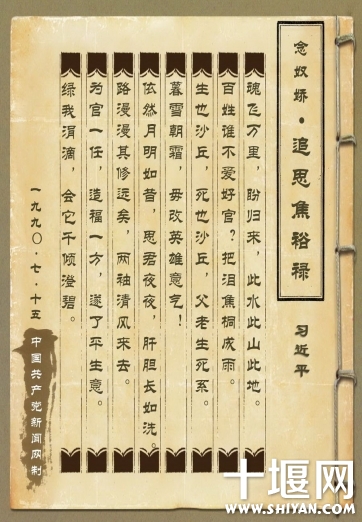 念奴娇·追思焦裕禄
习近平
魂飞万里，盼归来，此水此山此地。
百姓谁不爱好官？把泪焦桐成雨。
生也沙丘，死也沙丘，父老生死系。
暮雪朝霜，毋改英雄意气！
依然月明如昔，思君夜夜，肝胆长如洗。
路漫漫其修远矣，两袖清风来去。
为官一任，造福一方，遂了平生意。
绿我涓滴，会它千顷澄碧。
一九九〇·七·十五
中国共产党新闻网制
十堰网
WWW.SHIYAN.COM